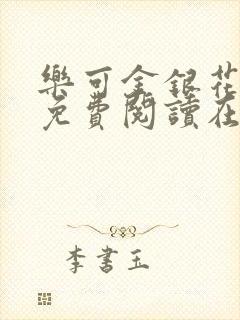 樂可金銀花
免費閱讀在
李書玉